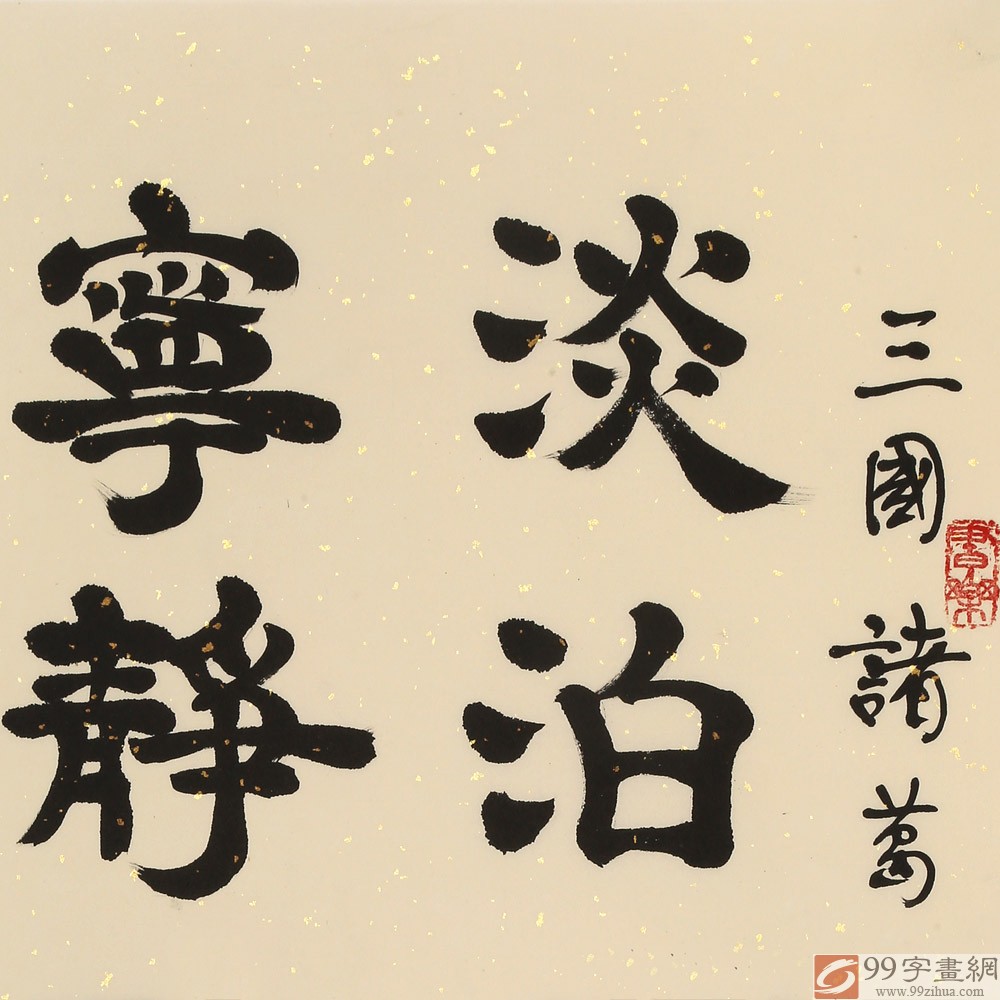 三國諸葛
淡泊
寧靜
99字畫網
www.99zihua.com